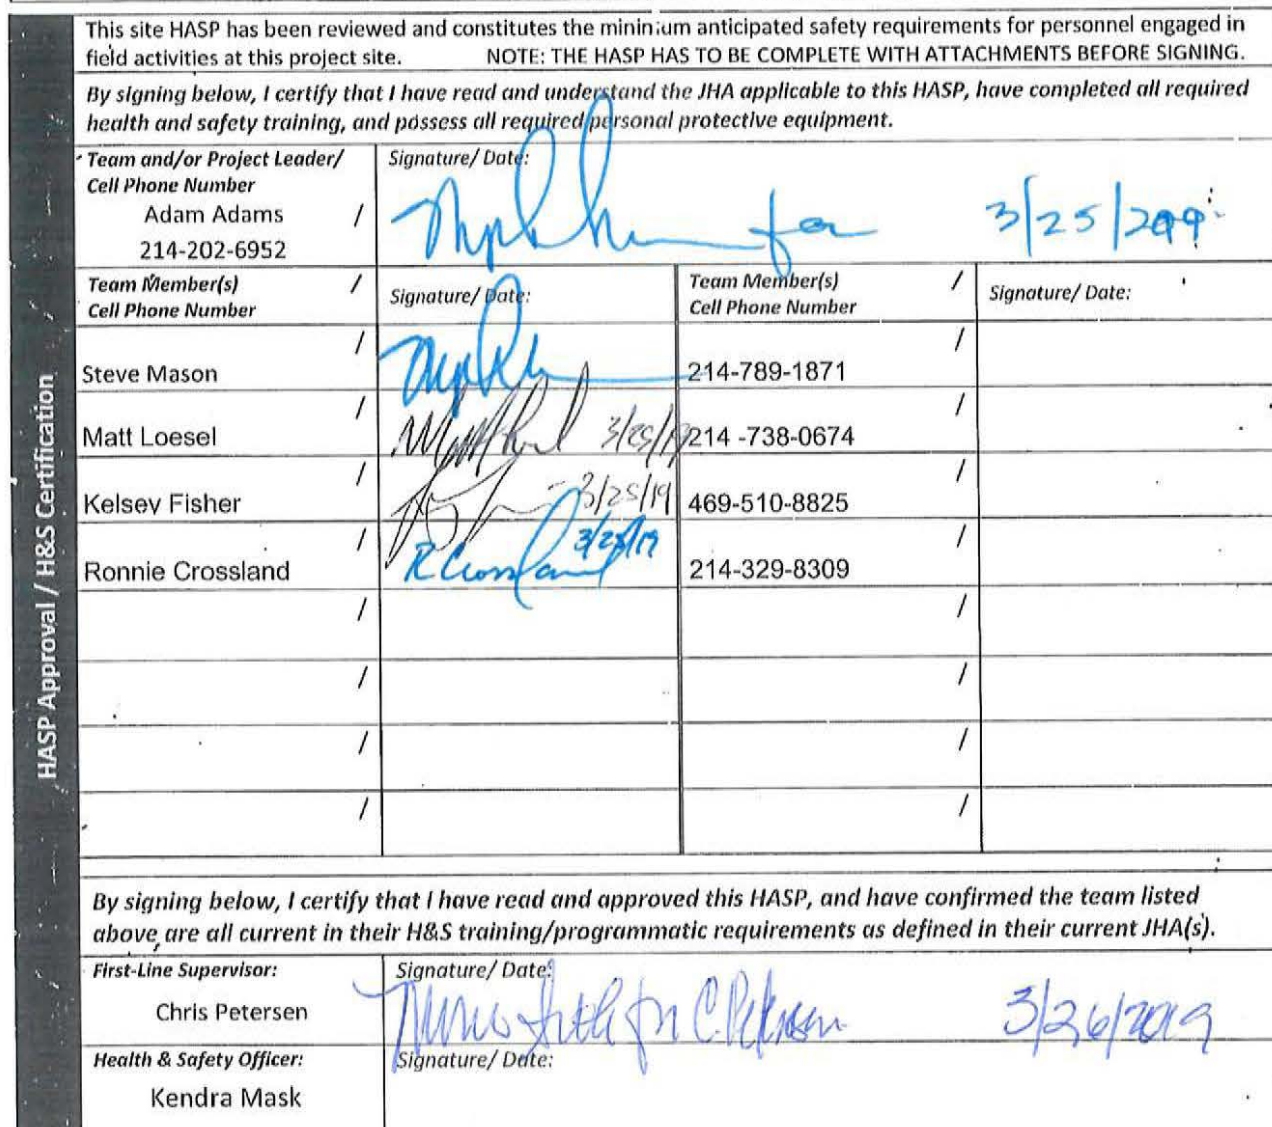 This site HASP has been reviewed and constitutes the minimum anticipated safety requirements for personnel engaged in
field activities at this project site. NOTE: THE HASP HAS TO BE COMPLETE WITH ATTACHMENTS BEFORE SIGNING.
By signing below, I certify that I have read and understand the JHA applicable to this HASP, have completed all required
health and safety training, and possess all required personal protective equipment.
Team and/or Project Leader/ Signature/ Date:
Cell Phone Number
Adam Adams / for 3/25/2019
214-202-6952
Team Member(s) / Signature/ Date: Team Member(s) / Signature/ Date:
Cell Phone Number Cell Phone Number
/ /
Steve Mason 214-789-1871
/ /
Matt Loesel 3/25/19 214 -738-0674
/ /
Kelsey Fisher 3/25/19 469-510-8825
/ 3/25/19 /
Ronnie Crossland R Crossland 214-329-8309
/ /
/ /
/ /
/ /
HASP Approval / H&S Certification
By signing below, I certify that I have read and approved this HASP, and have confirmed the team listed
above, are all current in their H&S training/programmatic requirements as defined in their current JHA(s).
First-Line Supervisor: Signature/ Date:
Chris Petersen for C. Petersen 3/26/2019
Health & Safety Officer: Signature/ Date:
Kendra Mask